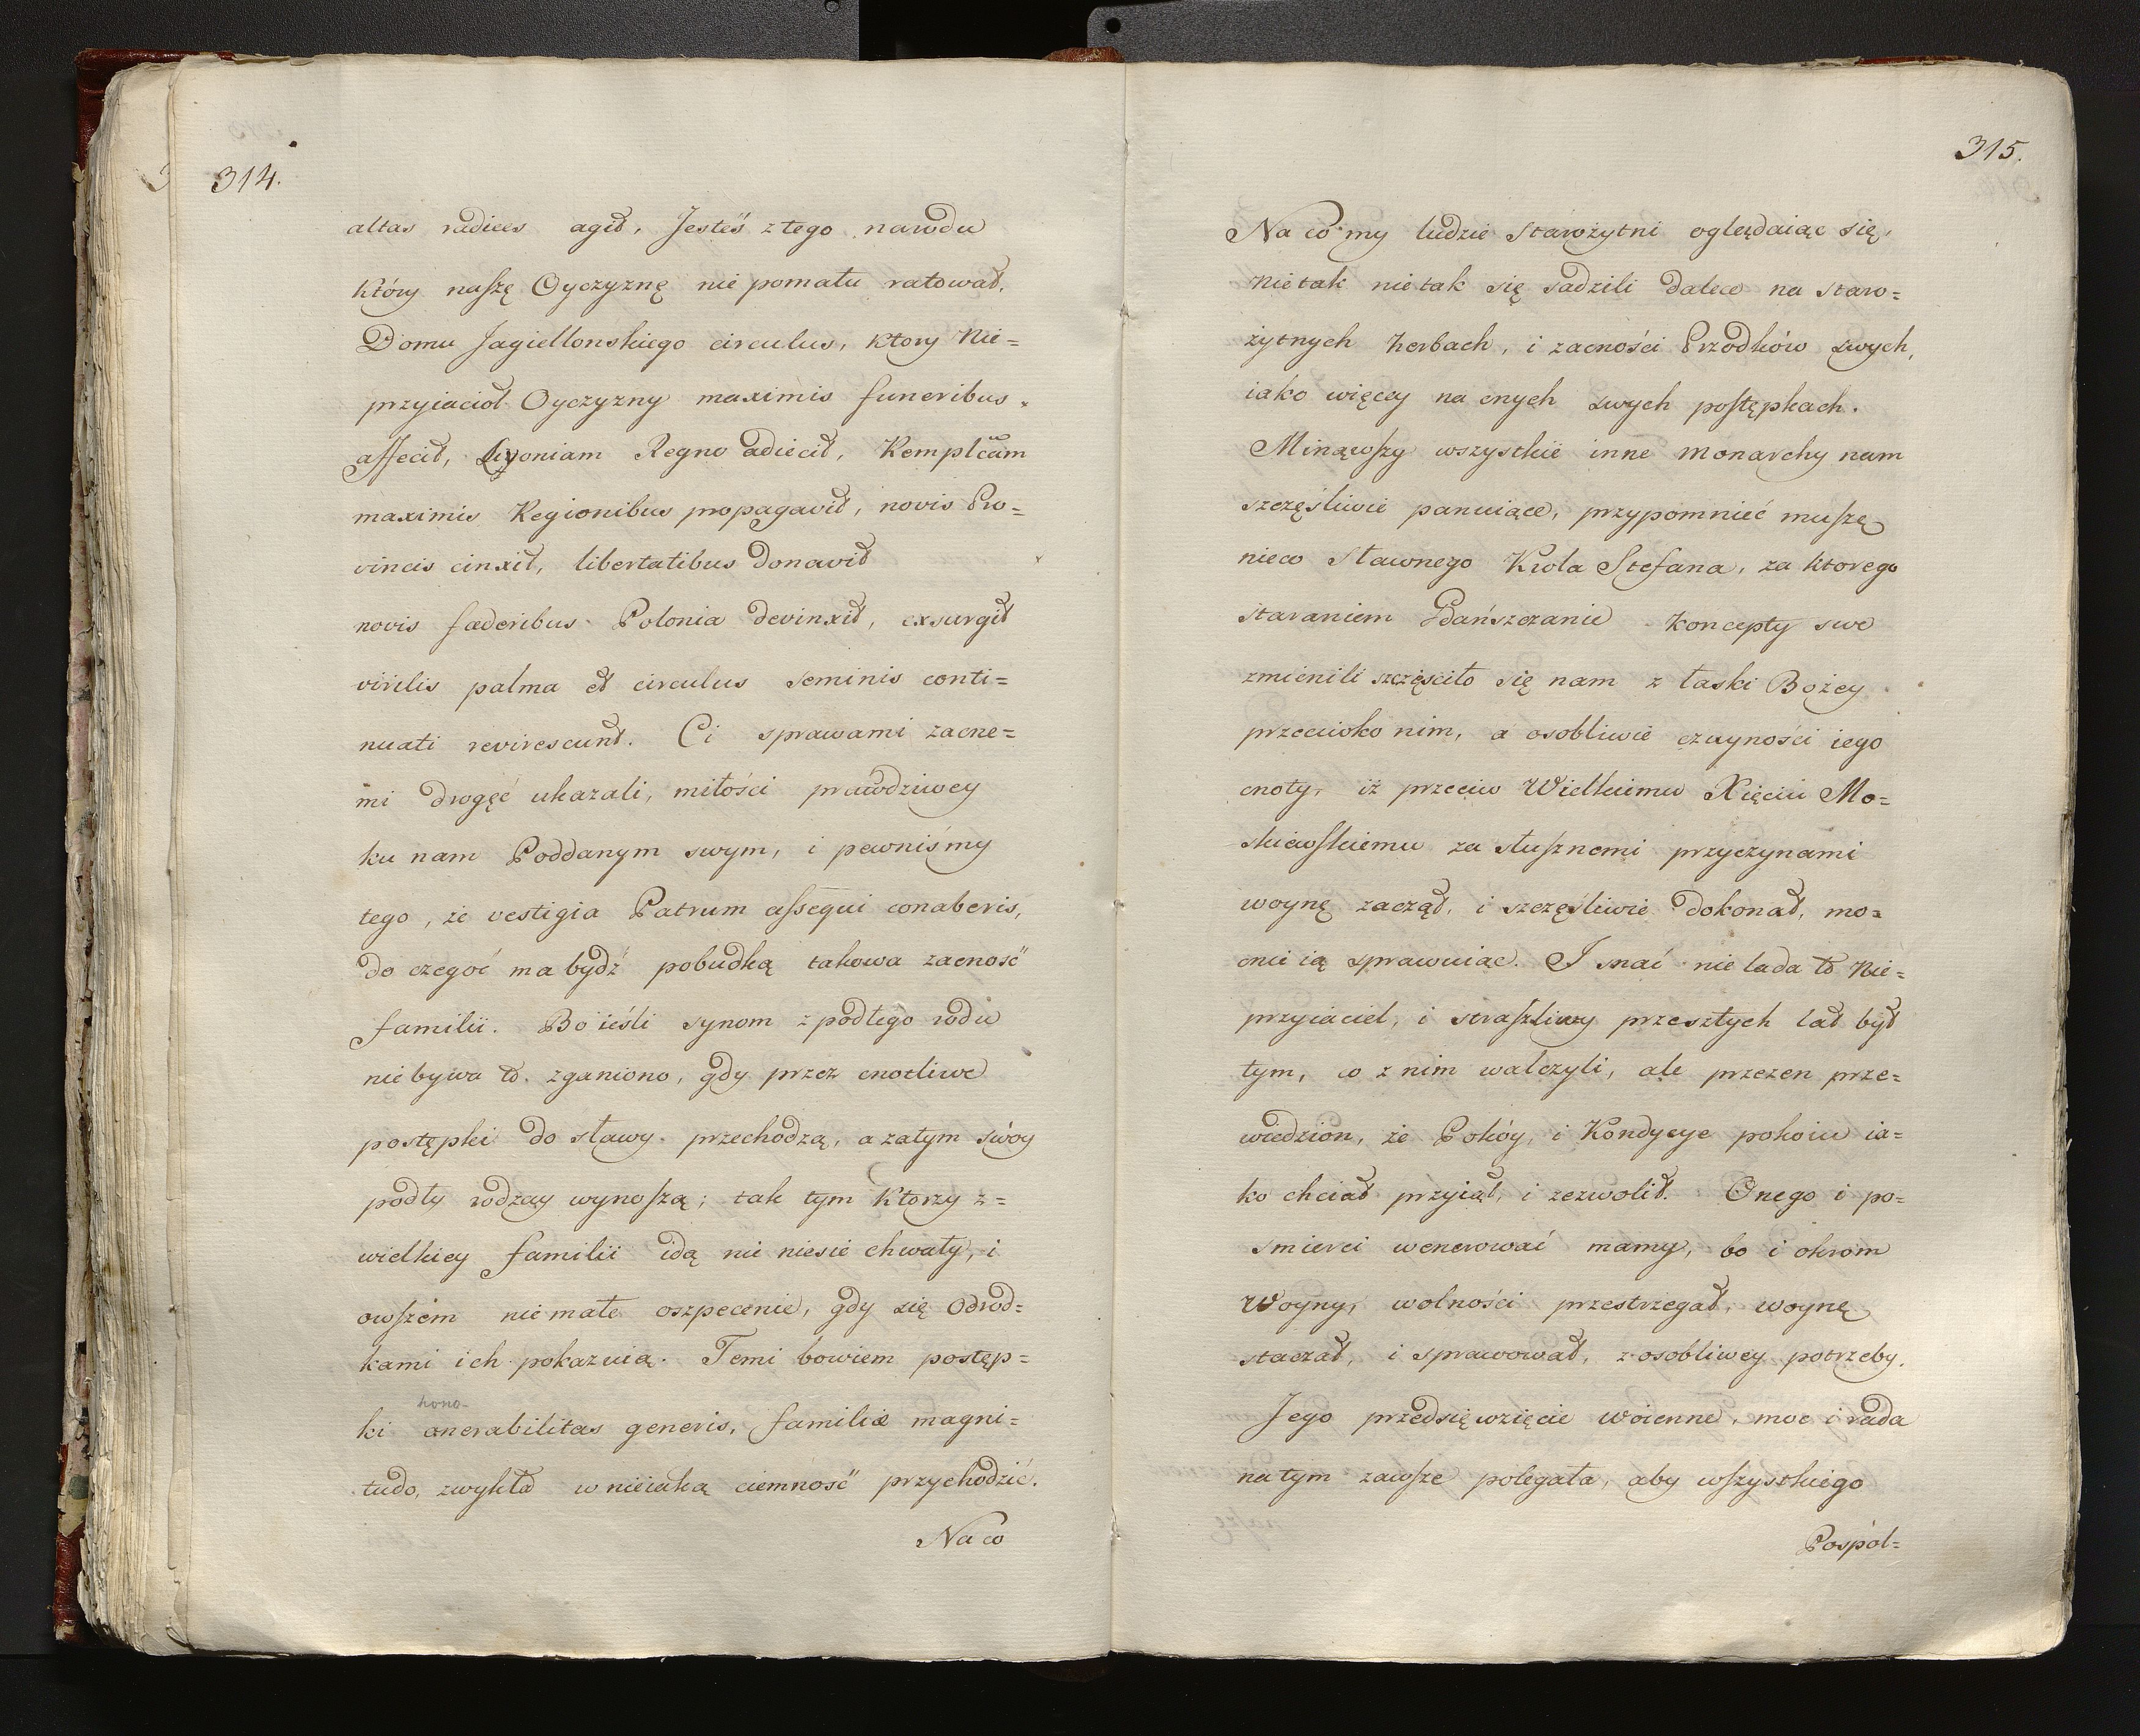 314.
altas radices agit, Jesteś z tego narodu
który naszę Oyczyznę nie pomału ratował.
Domu Jagiellonskiego circulus, ktory Nie=
przyiaciół Oyczyzny maximis funeribus
affecit, Livoniam Regno adiecit, Remplcam
maximis Regionibus propagavit, novis Pro=
vinciis cinxit, libertatibus Donavit
novis fæderibus Polonia devinxit, exsurgit
virilis palma et circulus seminis conti=
nuati revirescunt. Ci sprawami zacne=
mi drogęć ukazali, miłości prawdziwey
ku nam Poddanym swym, i pewniśmy
tego, że vestigia Patrum assequi conaberis,
do czegoć ma bydź pobudką takowa zacność
familii. Bo ieśli synom z podłego rodu
nie bywa to zganiono, gdy przez cnotliwe
postępki do sławy przechodzą, a zatym swóy
podły rodzay wynoszą; tak tym ktorzy z=
wielkiey familii idą nie niesie chwały, i
owszem nie małe oszpecenie, gdy się odrod=
kami ich pokazuią. Temi bowiem postęp=
hono-
ki onerabilitas generis, familiæ magni=
tudo, zwykła w nieiaką ciemność przychodzić.
Na co
315.
Na co my ludzie starożytni oglądaiąc się,
nie tak nie tak się sadzili dalece na staro=
żytnych herbach, i zacności Przodków swych,
iako więcey na cnych swych postępkach.
Minąwszy wszystkie inne monarchy nam
szczęśliwie panuiące, przypomnieć muszę
nieco sławnego Krola Stefana, za ktorego
staraniem Gdańszczanie koncepty swe
zmienili szczęsciło się nam z łaski Bożey
przeciwko nim, a osobliwie czuyności iego
cnoty, iż przeciw Wielkiemu Xięciu Mo=
skiewskiemu za słusznemi przyczynami
woynę zaczął, i szczęśliwie dokonał, mo=
cnie ią sprawuiąc. I snać nie lada to Nie=
przyiaciel, i straszliwy przeszłych lat był
tym, co z nim walczyli, ale przezen prze=
wiedzion, że Pokóy, i Kondycye pokoiu ia=
ko chciał przyiął, i zezwolił. Onego i po=
smierci wenerować mamy, bo i okrom
Woyny, wolności przestrzegał, woynę
staczał, i sprawował, z osobliwey potrzeby.
Jego przedsięwzięcie woienne, moc i rada
na tym zawsze polegała, aby wszystkiego
Pospol=